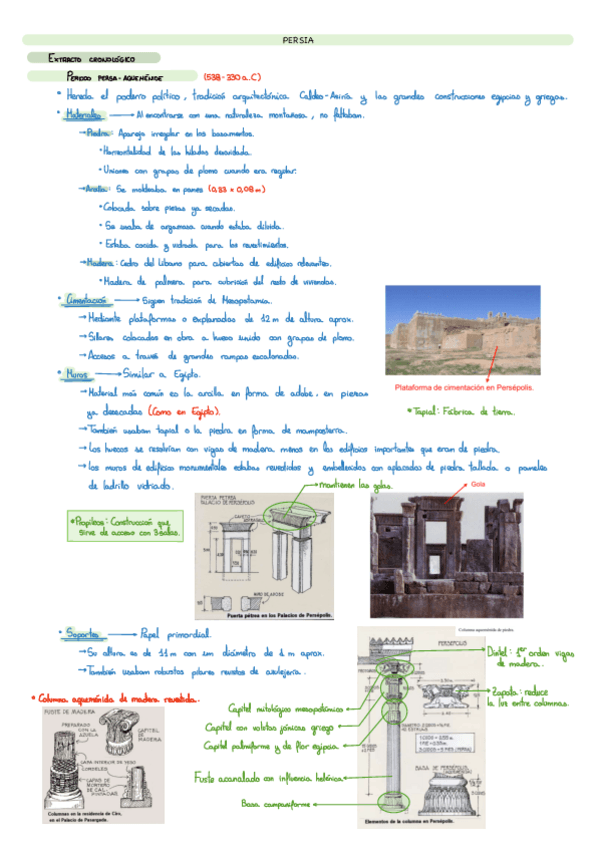 PERSIA
EXTRACTO CRONOLÓGICO
PERIODO PERSA-AQUEMÉNIDE (538-330 a.C)
* Hereda el poderío político, tradición arquitectónica Caldeo-Asiria y las grandes construcciones egipcias y griegas.
* Materiales → Al encontrarse con una naturaleza montañosa, no faltaban.
→ Piedra: Aparejo irregular en los basamentos.
* Horizontalidad de las hiladas descuidada.
* Uniones con grapas de plomo cuando era regular.
→ Arcilla: Se moldeaba en panes (0,33 x 0,08 m)
* Colocada sobre piezas ya secadas.
* Se usaba de argamasa cuando estaba diluida.
* Estaba cocida y vidriada para los revestimientos.
→ Madera: Cedro del Líbano para cubiertas de edificios relevantes.
* Madera de palmera para cubrición del resto de viviendas.
* Cimentación → Siguen tradición de Mesopotamia.
→ Mediante plataformas o explanadas de 12 m de altura aprox.
→ Sillares colocados en obra a hueso unido con grapas de plomo.
→ Accesos a través de grandes rampas escalonadas.
Plataforma de cimentación en Persépolis.
* Muros → Similar a Egipto.
→ Material más común es la arcilla en forma de adobe, en piezas
ya desecadas (Como en Egipto).
* Tapial: Fábrica de tierra.
→ También usaban tapial o la piedra en forma de mampostería.
→ Los huecos se resolvían con vigas de madera menos en los edificios importantes que eran de piedra.
→ Los muros de edificios monumentales estaban revestidos y embellecidos con aplacados de piedra tallada o paneles
de ladrillo vidriado.
→ mantienen las golas.
Gola
* Propileos: Construcción que
sirve de acceso con 3 salas.
PUERTA PETREA
PALACIO DE PERSÉPOLIS
Puerta pétrea en los Palacios de Persépolis.
* Soportes → Papel primordial.
→ Su altura es de 11 m con un diámetro de 1 m aprox.
→ También usaban robustos pilares revestidos de azulejería.
Columna aqueménida de piedra.
PERSÉPOLIS
Dintel: 1er orden vigas
de madera.
Zapata: reduce
la luz entre columnas.
* Columna aqueménida de madera revestida.
FUSTE DE MADERA
PREPARADO
CON LA
AZUELA
CAPITEL
DE
MADERA
CAPA INTERIOR DE YESO
CORDELES
CAPAS DE
MORTERO
DE CAL
PINTADAS
Columnas en la residencia de Ciro,
en el Palacio de Pasargada.
Capitel mitológico mesopotámico
Capitel con volutas jónicas griego
Capitel palmiforme y de flor egipcia.
Fuste acanalado con influencia helénica
Basa campaniforme
BASA DE PERSÉPOLIS
Elementos de la columna en Persépolis.